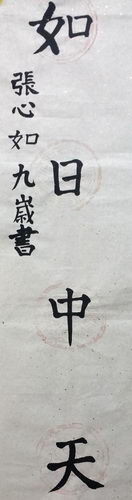 如日中天
張心如九歲書